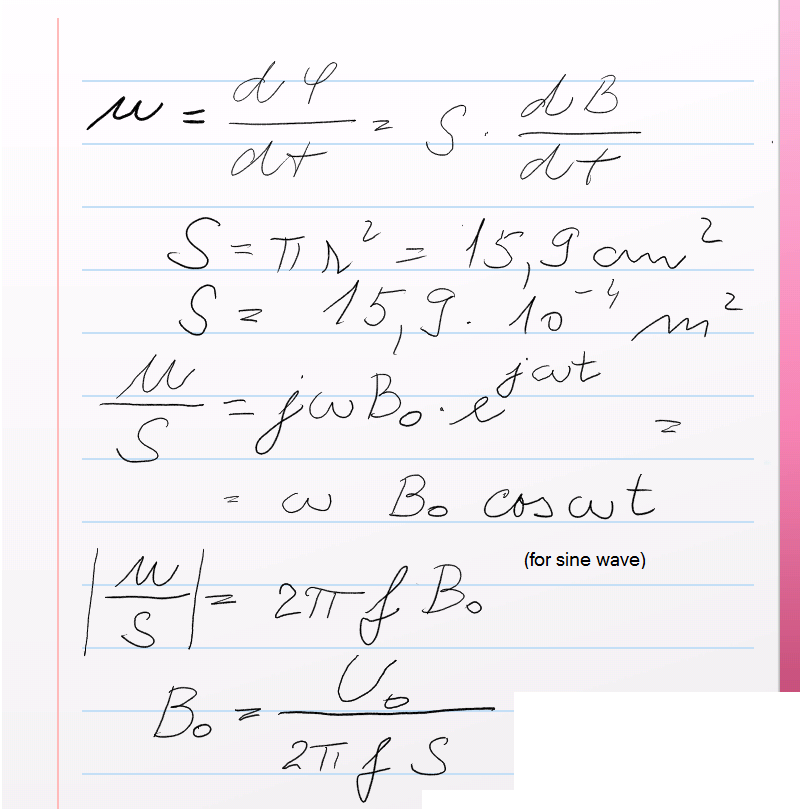 u = dφ/dt = S · dB/dt
S = π r² = 15,9 cm²
S = 15,9 · 10⁻⁴ m²
u/S = jωB₀ · e^jωt =
= ω B₀ cos ωt
(for sine wave)
|u/S| = 2π f B₀
B₀ = U₀/2π f S